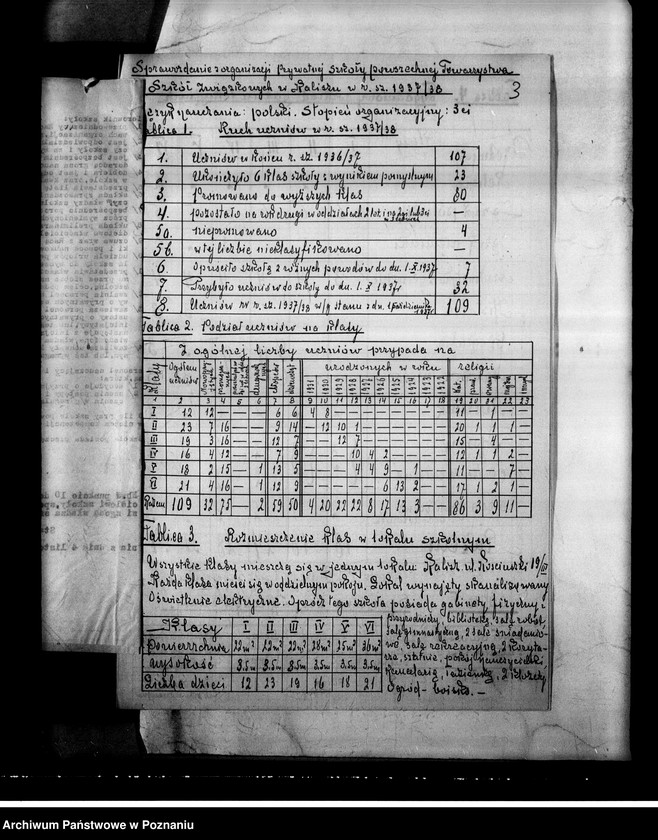 Sprawozdanie z organizacji prywatnej szkoły powszechnej Towarzystwa
Szkół Związkowych w Kaliszu w r. sz. 1937/38
3
język nauczania: polski. Stopień organizacyjny: 3 ci
Tablica 1. Ruch uczniów w r. sz. 1937/38
1. Uczniów w końcu r. sz. 1936/37 107
2. Ukończyło 6 klas szkoły z wynikiem pomyślnym 23
3. Promowano do wyższych klas 80
4. pozostało na rok drugi w oddziałach —
5a. niepromowano 4
5b. w tej liczbie nieklasyfikowano —
6. Opuściło szkołę z różnych powodów do dn. 1.X 1937 7
7. Przybyło uczniów do szkoły do dn. 1. X 1937 r 32
8. Uczniów w r. sz. 1937/38 w/g stanu z dn. 1 października 1937 r 109
Tablica 2. Podział uczniów na klasy
Z ogólnej liczby uczniów przypada na
Klasy Ogółem uczniów chłopców dziewcząt urodzonych w roku religii
1931 1930 1929 1928 1927 1926 1925 1924 1923 1922
1 2 3 4 5 6 7 8 9 10 11 12 13 14 15 16 17 18 19 20 21 22 23
I 12 12 — — — 6 6 4 8 — — — — — — — — 11 — 1 — —
II 23 7 16 — — 9 14 — 12 10 1 — — — — — — 20 1 1 1 —
III 19 3 16 — — 12 7 — — 12 7 — — — — — — 15 — 4 — —
IV 16 4 12 — — 7 9 — — — 10 4 2 — — — — 12 1 1 2 —
V 18 2 15 — 1 13 5 — — — 4 4 9 — 1 — — 11 — — 7 —
VI 21 4 16 — 1 12 9 — — — — — 6 13 2 — — 17 1 2 1 —
Razem 109 32 75 — 2 59 50 4 20 22 22 8 17 13 3 — — 86 3 9 11 —
Tablica 3. Rozmieszczenie klas w lokalu szkolnym
Wszystkie klasy mieszczą się w jednym lokalu Kalisz ul. Kościuszki 19/III
Każda klasa mieści się w oddzielnym pokoju. Lokal wynajęty skanalizowany
Oświetlenie elektryczne. Oprócz tego szkoła posiada gabinety, fizyczny i
przyrodniczy, bibliotekę, salę robót
salę gimnastyczną, 2 sale śniadanio-
we, salę rekreacyjną, 2 koryta-
rze, szatnię, pokój nauczycielski
kancelarię, 2 klozety
Ogród - boisko. —
Klasy I II III IV V VI
Powierzchnia 22 m² 22 m² 22 m² 28 m² 25 m² 36 m²
wysokość 3.5 m 3.5 m 3.5 m 3.5 m 3.5 m 3.5 m
Liczba dzieci 12 23 19 16 18 21
Archiwum Państwowe w Poznaniu